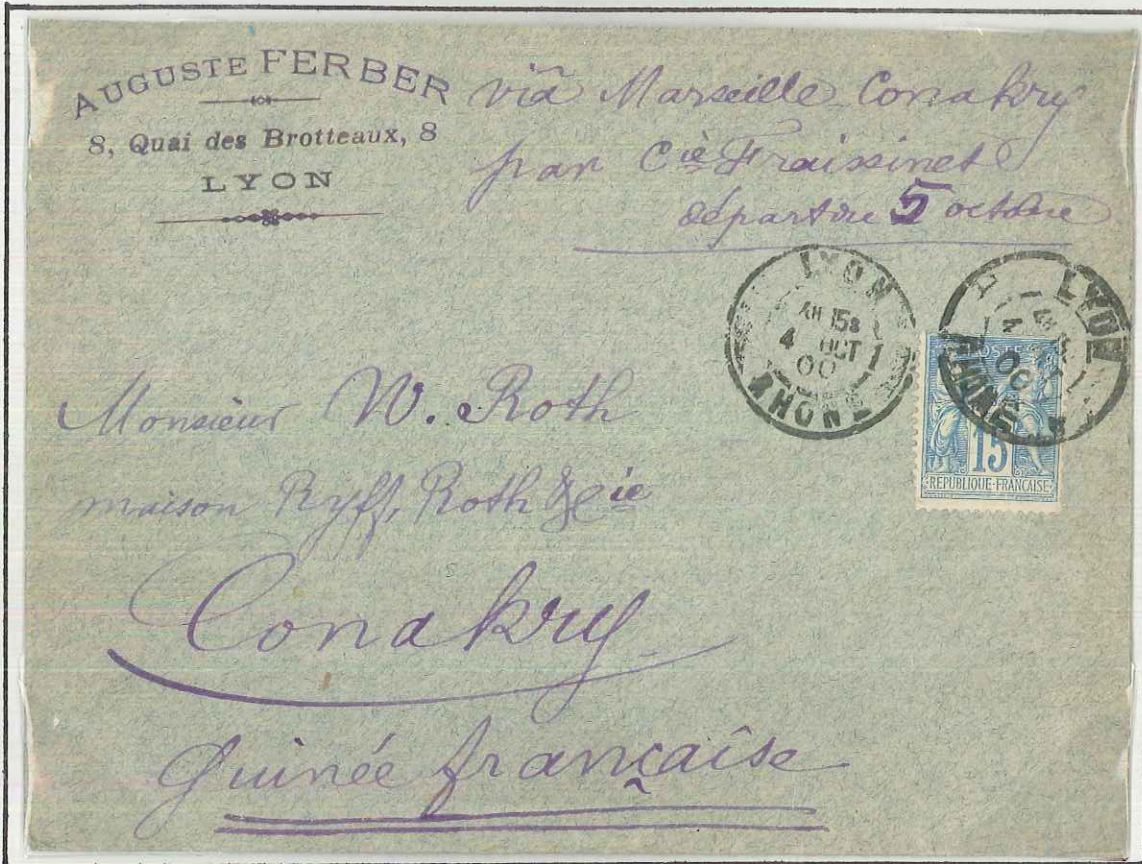 AUGUSTE FERBER
8, Quai des Brotteaux, 8
LYON
viâ Marseille Conakry
par Cie Fraissinet
départ du 5 octobre
LYON
4 OCT
00
RHONE
LYON
00
RHONE
POSTE
15
REPUBLIQUE FRANCAISE
Monsieur W. Roth
maison Ryff, Roth & Cie
Conakry
Guinée française